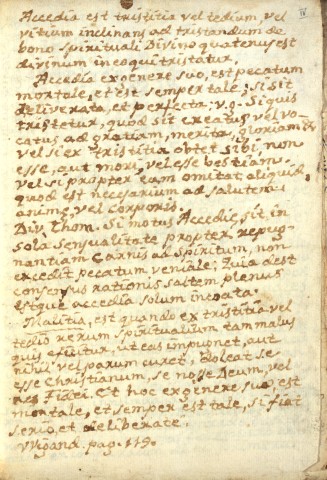 Accedia est tristitia vel tedium, vel
vitium inclinans ad tristandum de
bono spirituali Divino quatenus est
divinum in eo qui tristatur.
Accedia ex genere suo, est pecatum
mortale, et est semper tale; si sit
deliverata, et perfecta; v.g. si quis
tristetur, quod sit creatus, vel vo-
catus ad gratiam, merita, gloriam &
vel si ex tristitia obtet sibi non
esse, aut mori, vel esse bestiam.
vel si propter eam omitat aliquid
quod est necesarium ad salutem
anime, vel corporis.
Div. Thom. Si motus Accedie, sit in
sola sensualitate propter repug-
nantiam Carnis ad Spiritum, non
excedit pecatum veniale; Quia deest
consensus rationis saltem plenus
estque accedia solum incoata.
Malitia, est quando ex tristitia vel
tedio rerum spiritualium tam malus
quis eficitur, ut eas impugnet, aut
nihil vel parum curet. doleat se
esse Christianum, se nosse Deum, vel
res Fidei. Et hoc ex genere suo, est
mortale, et semper est tale, si fiat
serio, et deliberate.
Wigand. pag. 119.